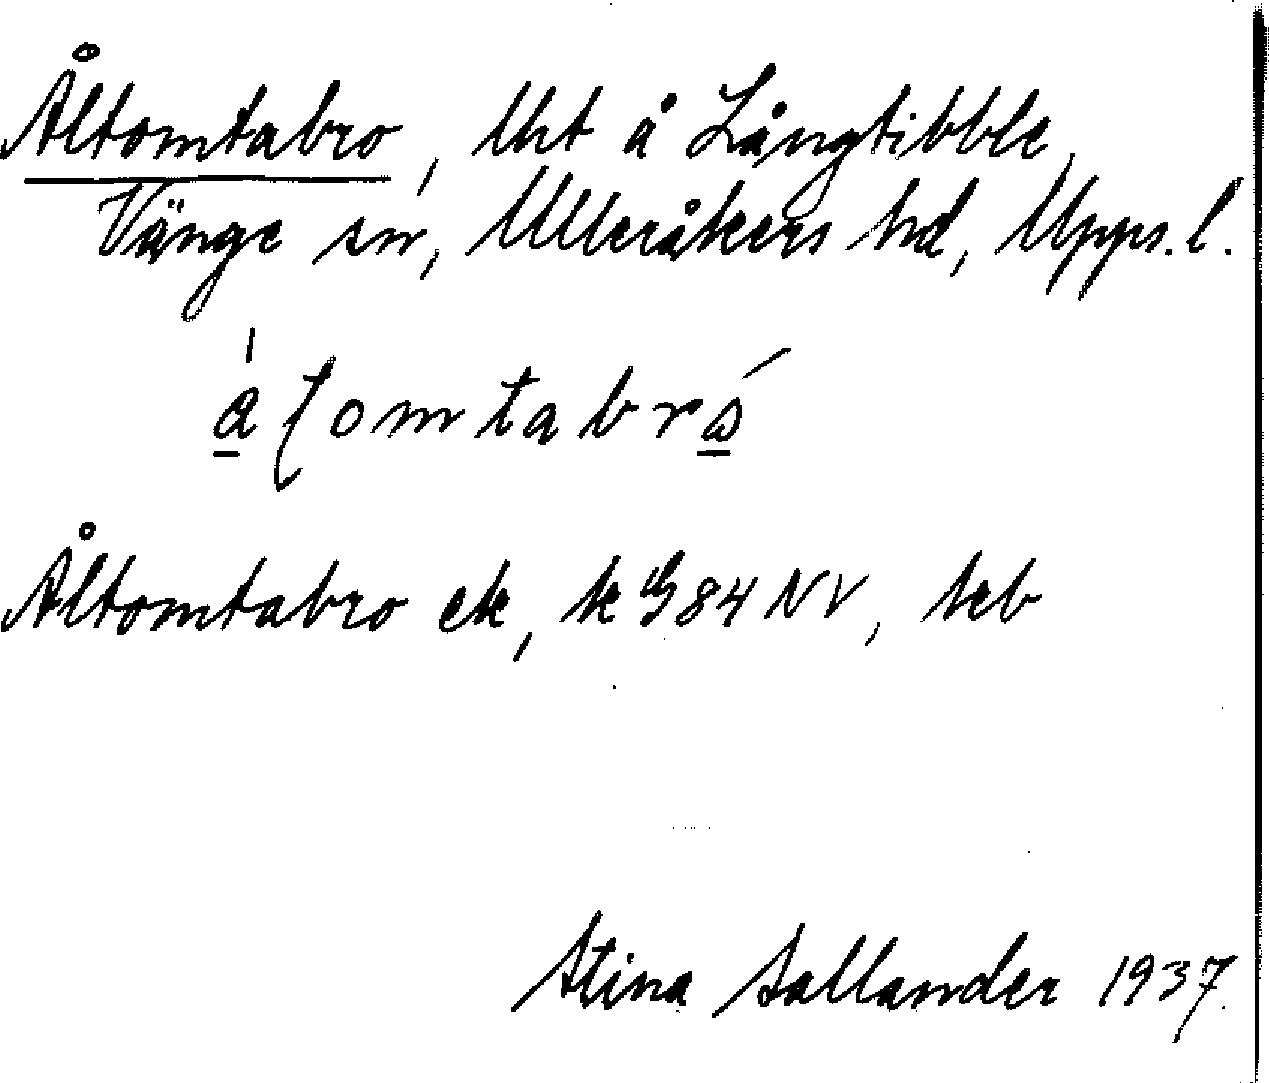 Åltomtabro, lht å Långtibble,
Vänge sn, Ulleråkers hd, Upps. l.
Åltomtabro ek, k G 84 NV, heb
Stina Sallander 1937.